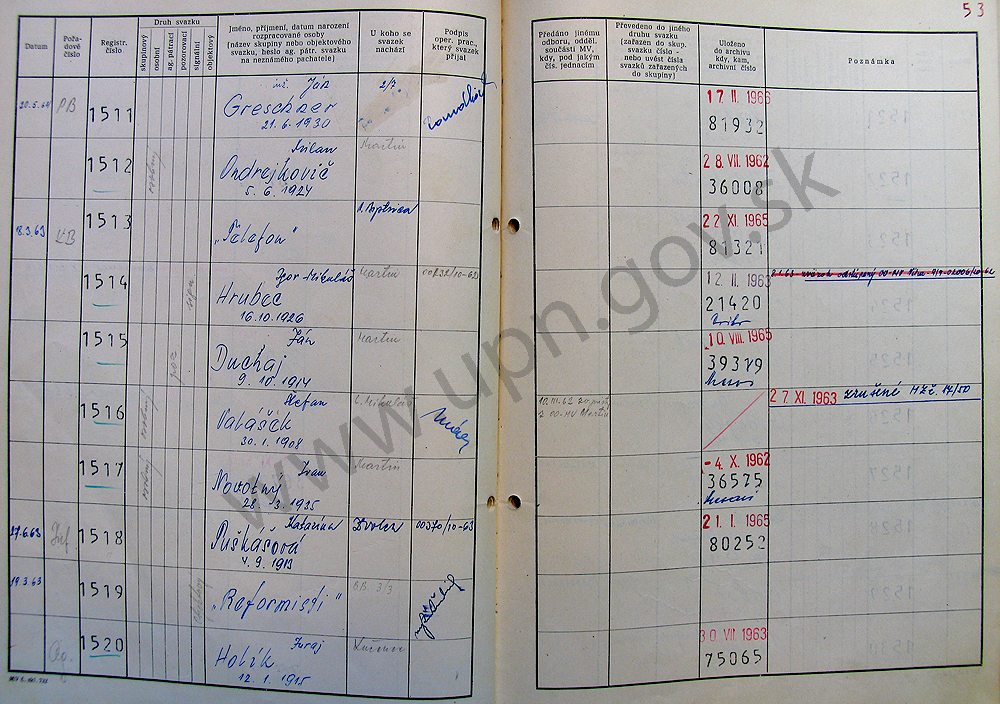 53
Datum
Pořadové číslo
Registr. číslo
Druh svazku
skupinový
osobní
ag. pátrací
pozorovací
signální
objektový
Jméno, příjmení, datum narození
rozpracované osoby
(název skupiny nebo objektového
svazku, heslo ag. pátr. svazku
na neznámého pachatele)
U koho se
svazek
nachází
Podpis
oper. prac.,
který svazek
přijal
Předáno jinému
odboru, odděl.
součásti MV,
kdy, pod jakým
čís. jednacím
Převedeno do jiného
druhu svazku
(zařazen do skup.
svazku číslo -
nebo uvést čísla
svazků zařazených
do skupiny)
Uloženo
do archivu
kdy, kam,
archivní číslo
Poznámka
PB
1511
Ján
Greschner
21. 6. 1930
2/7
17. II. 1966
81932
1512
osobný
Milan
Ondrejkovič
5. 6. 1924
Martin
28. VII. 1962
36008
18.3.63
1513
„Telefon"
22. XI. 1965
81321
1514
Igor Mikuláš
Hrubec
16. 10. 1926
Martin
12. II. 1963
21420
1515
Ján
Duchaj
9. 10. 1914
Martin
10. VIII. 1965
39379
1516
osobný
Štefan
Valášek
30. 1. 1908
L. Mikuláš
27. XI. 1963 zrušené
1517
osobný
Ivan
Novotný
28. 3. 1935
Martin
-4. X. 1962
36575
27.6.63
1518
Katarína
Puškášová
4. 9. 1913
Zvolen
00370/10-63
21. I. 1965
80252
19.3.63
1519
„Reformisti"
BB. 3/3
1520
Juraj
Holík
12. 1. 1915
Lučenec
30. VII. 1963
75065
www.upn.gov.sk